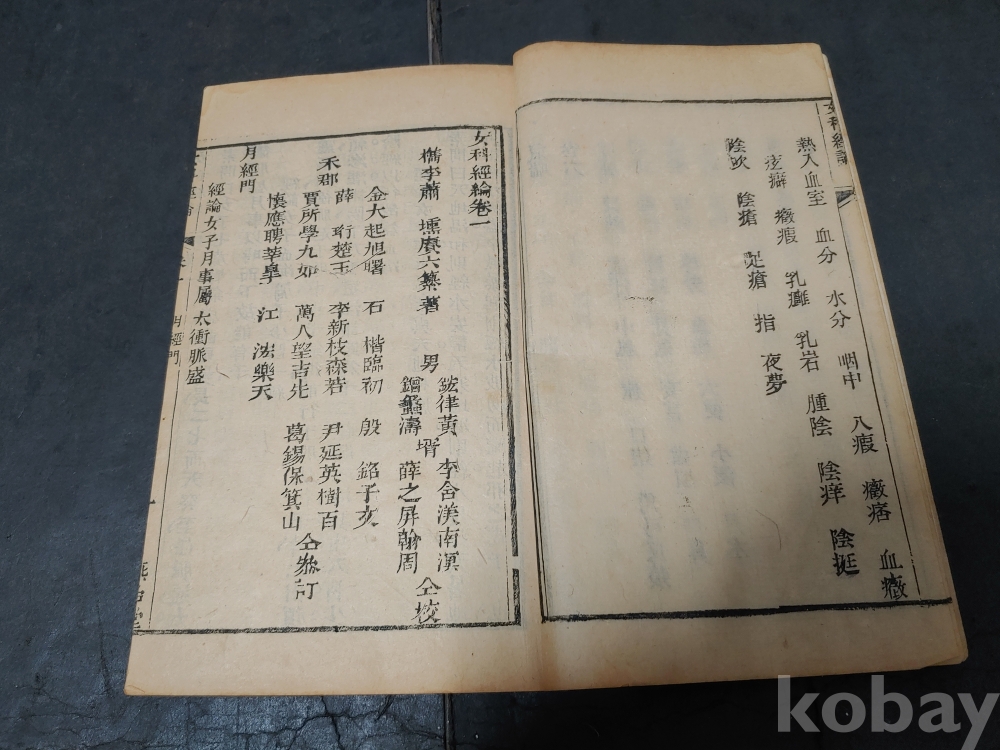 女科經論
熱入血室 血分 水分 咽中 八瘕 癥痞 血癥
痃癖 癥瘕 乳癰 乳岩 腫陰 陰痒 陰挺
陰吹 陰瘡 疋瘡 指 夜夢
女科經綸卷一
檇李蕭 壎賡六纂著 男 鋐律黃 鐠蠡濤 壻 李舍渼南溟 薛之屏翰周 仝挍
禾郡
金大起旭曙 石 楷臨初 殷 銘子亥
薛 珩楚玉 李新枝森若 尹延英樹百
賈所學九如 萬人望吉先 葛錫保箕山 仝叅訂
懷應聘莘臯 江 泓樂天
月經門
經論女子月事屬太衝脈盛
月經門 一
kobay